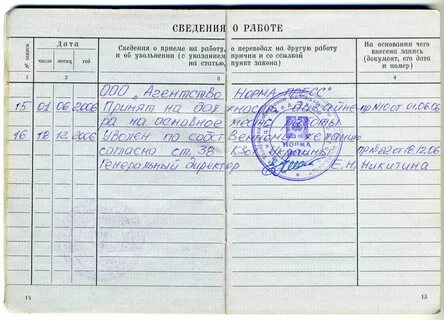 СВЕДЕНИЯ О РАБОТЕ
№ записи
Дата
число
месяц
год
Сведения о приеме на работу, о переводах на другую работу
и об увольнении (с указанием причин и со ссылкой
на статью, пункт закона)
На основании чего
внесена запись
(документ, его дата
и номер)
1
2
3
4
ООО „Агентство НОРМА ПРЕСС"
15 01 06 2006 Принят на должность дизайне пр№10 от 01.06.06
ра на основное место работы
16 18 12 2006 Уволен по собственному желанию
согласно ст. 38 КЗоТ Украины пр№82 от 18.12.06
Генеральный директор Е.Н. Никитина
НОРМА
14
15